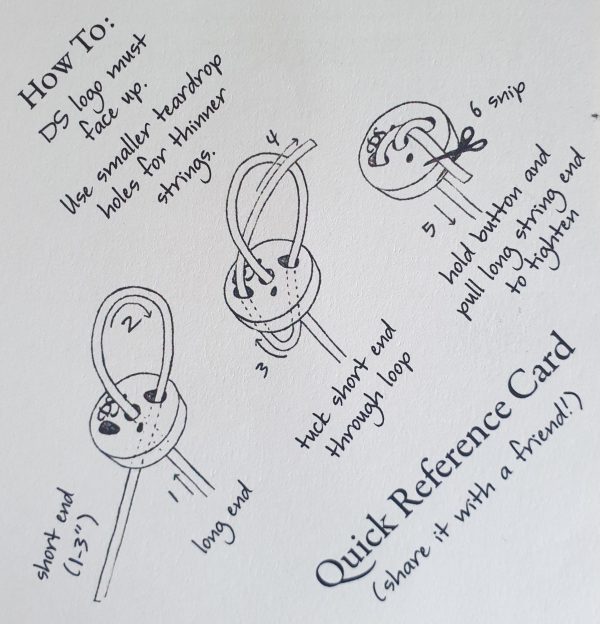 How To:
DS logo must
face up.
Use smaller teardrop
holes for thinner
strings.
DS
1
2
short end
(1-3")
long end
DS
3
4
tuck short end
through loop
DS
5
6 snip
hold button and
pull long string end
to tighten
Quick Reference Card
(share it with a friend!)